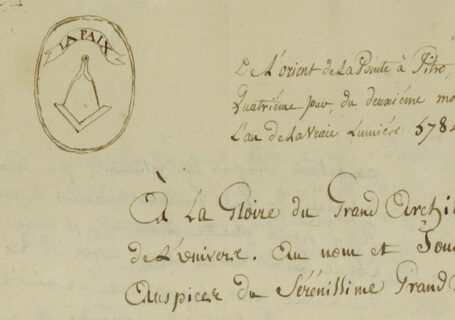 LA PAIX
De L'orient de La Pointe à Pitre
Quatriéme jour, du deuxiéme mo
L'an de La Vraie Lumiére 5784
À La Gloire du Grand Archi
de L'univers. Au nom et Sous
Auspices du Sérénissime Grand